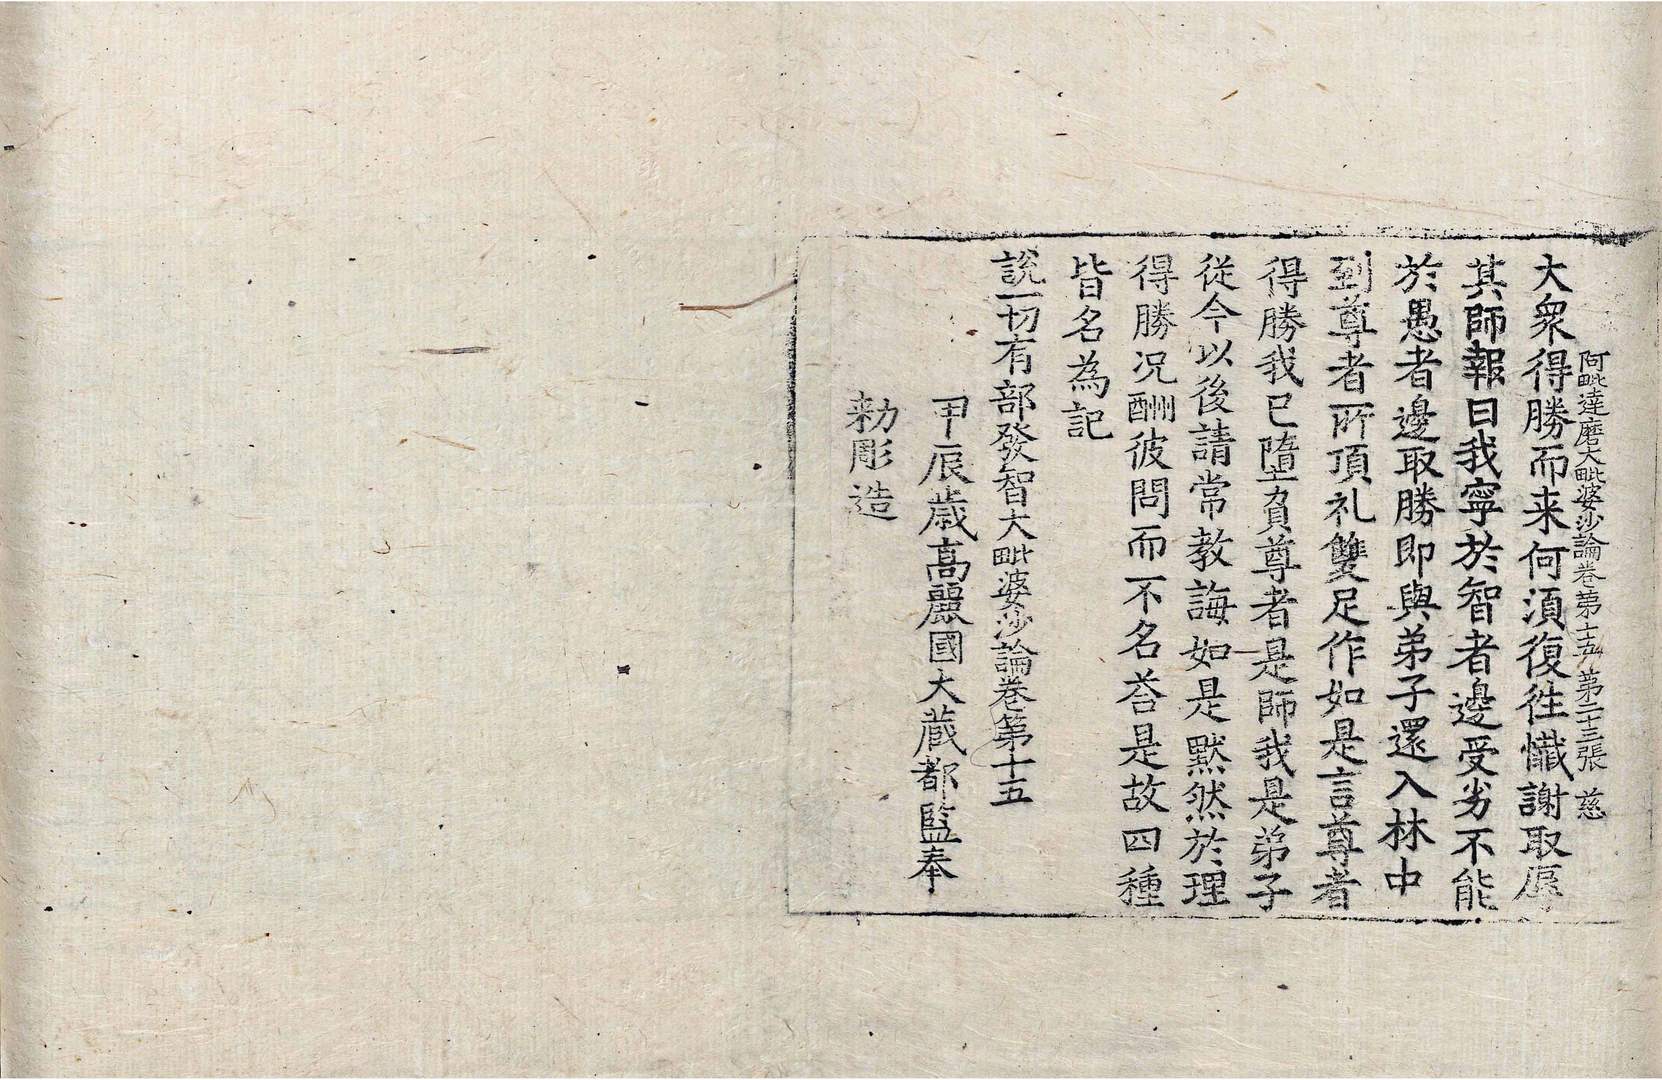 阿毗達磨大毗婆沙論卷第十五 第二十三張 慈
大衆得勝而来何須復徃懺謝取辱
其師報曰我寧於智者邊受劣不能
於愚者邊取勝即與弟子還入林中
到尊者所頂礼雙足作如是言尊者
得勝我已墮負尊者是師我是弟子
從今以後請常教誨如是默然於理
得勝况酬彼問而不名荅是故四種
皆名為記
說一切有部發智大毗婆沙論卷第十五
甲辰歲高麗國大藏都監奉
勑彫造